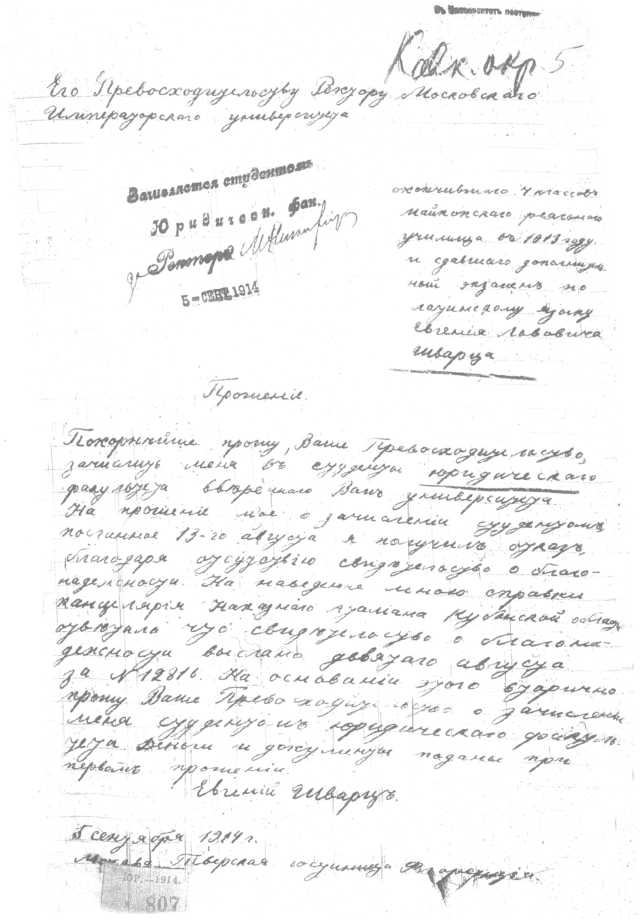 Въ Университетъ поступ
Кавк. окр 5
Его Превосходительству Ректору Московскаго
Императорскаго университета
Зачисляется студентомъ
Юридическ. фак.
Ректоръ
5 – СЕНТ. 1914
окончившаго 7 классовъ
Майкопскаго реальнаго
училища въ 1913 году
и сдавшаго дополнитель
ный экзаменъ по
латинскому языку
Евгенія Львовича
Шварца
Прошеніе.
Покорнѣйше прошу, Ваше Превосходительство,
зачислить меня въ студенты юридическаго
факультета ввѣреннаго Вамъ университета.
На прошеніе мое о зачисленіи студентомъ
посланное 13-го августа я получилъ отказъ,
благодаря отсутствію свидѣтельства о благо-
надежности. На наведенные мною справки
канцелярія Наказнаго атамана Кубанской област
отвѣтила что свидѣтельство о благона-
дежности выслано девятаго августа
за № 12816. На основаніи этого вторично
прошу Ваше Превосходительство о зачисленіи
меня студентомъ юридическаго факуль-
тета. Деньги и документы поданы при
первомъ прошеніи.
Евгеній Шварцъ.
5 сентября 1914 г.
Москва Тверская гостиница
ЮР.—1914.
807